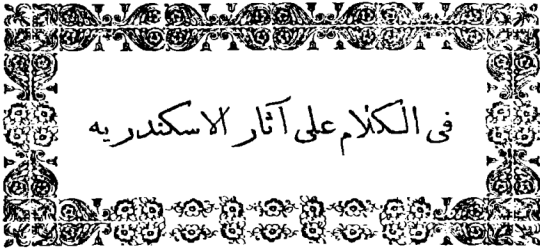 فى الكلام على آثار الاسكندريه